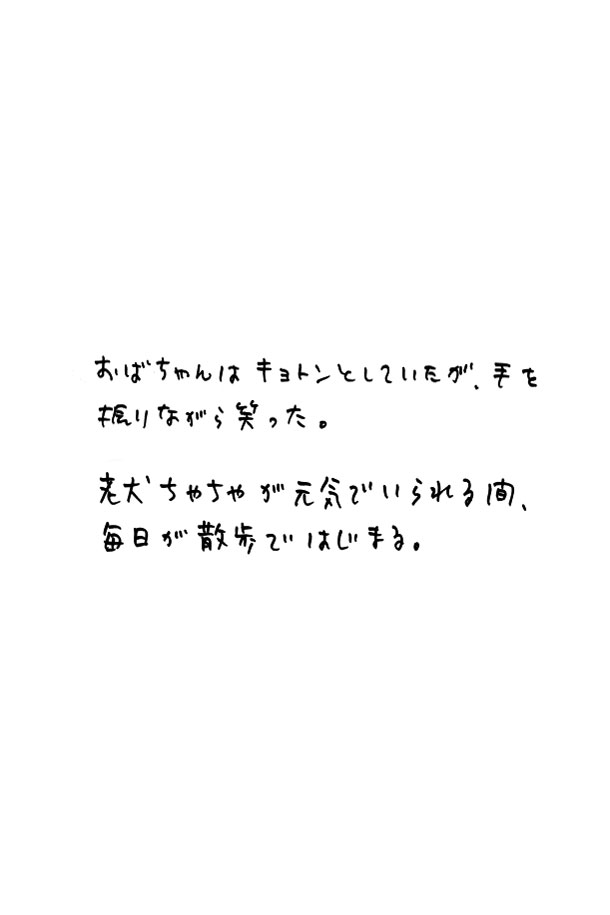 おばちゃんはキョトンとしていたが、手を
振りながら笑った。
老犬ちゃちゃが元気でいられる間、
毎日が散歩ではじまる。